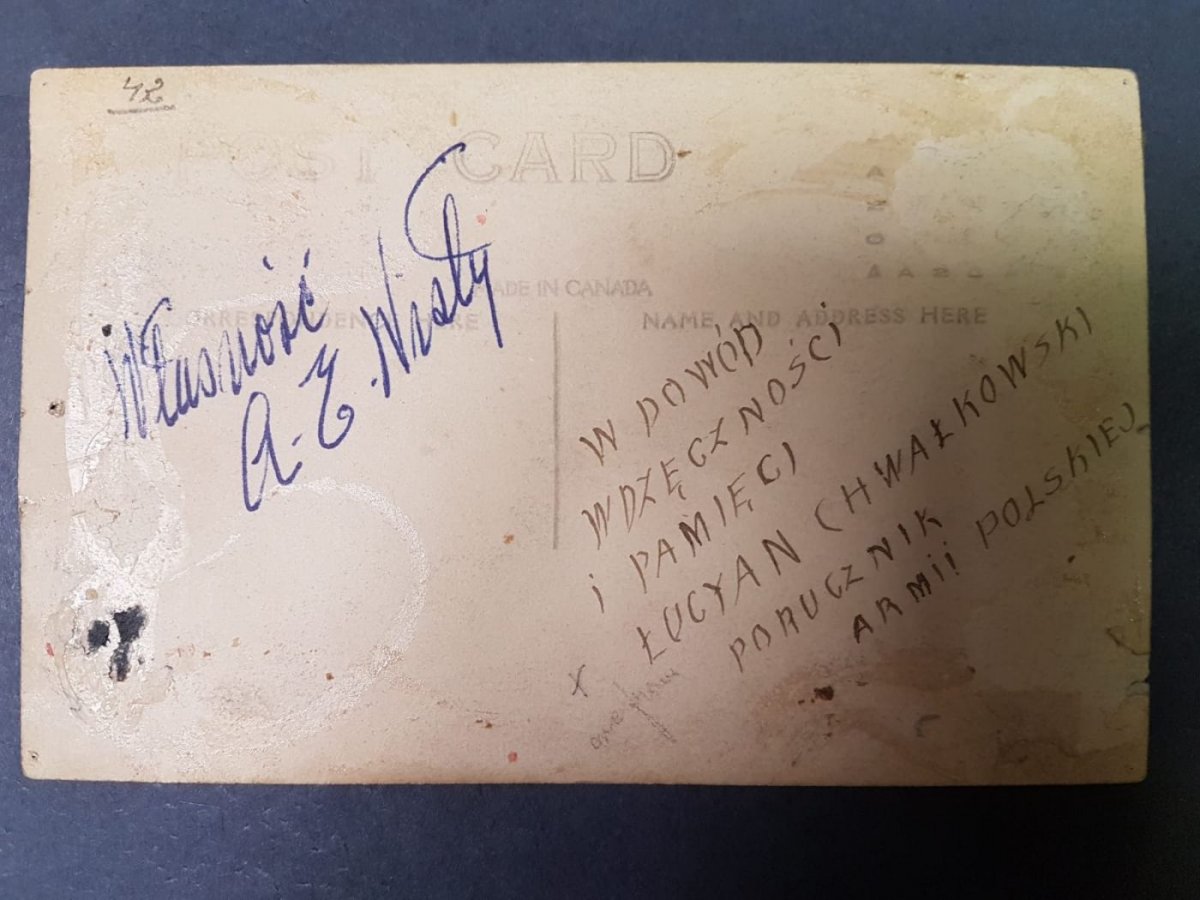 42
POST CARD
MADE IN CANADA
CORRESPONDENCE HERE
NAME AND ADDRESS HERE
Własność
A. E. Wisły
W DOWÓD
WDZĘCZNOŚCI
i PAMIĘCI
ŁUCYAN CHWAŁKOWSKI
PORUCZNIK
ARMII POLSKIEJ
x